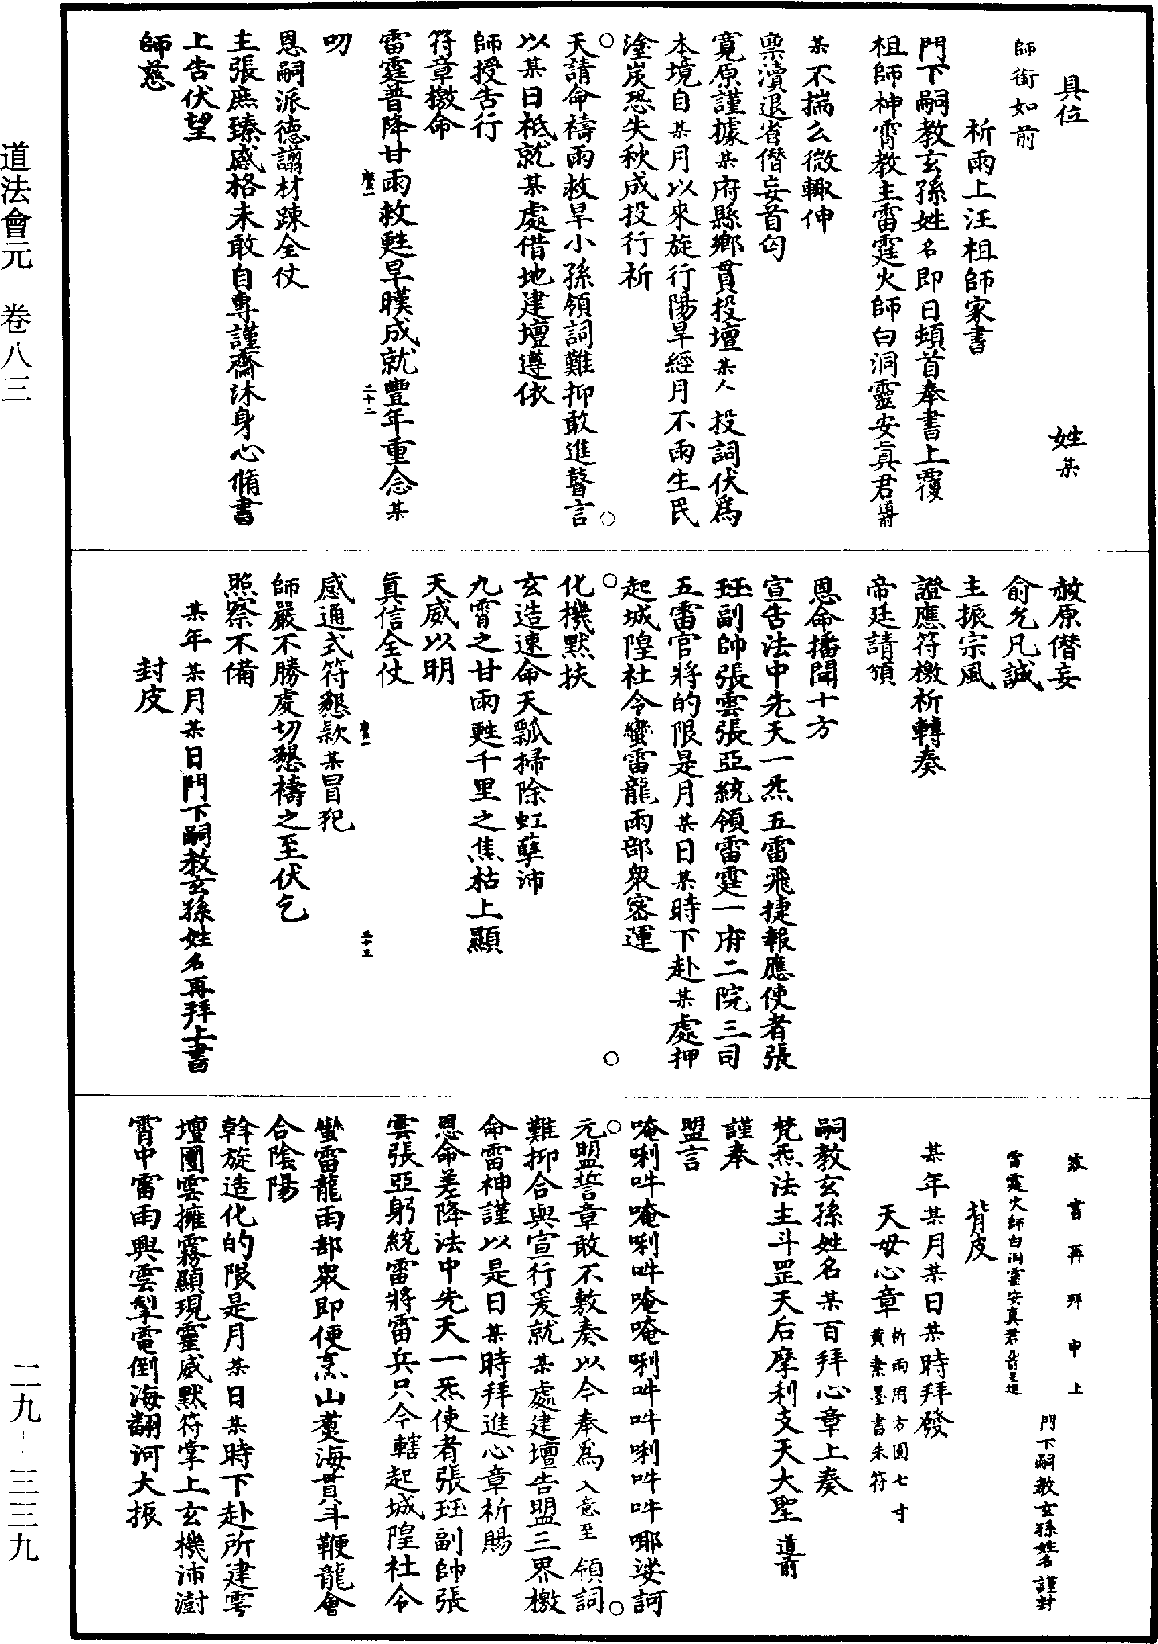 道法會元　卷八三
二九-三三九
具位　姓某
師銜如前
祈雨上汪祖師家書
門下嗣教玄孫姓名即日頓首奉書上覆
祖師神霄教主雷霆火師白洞靈安真君爵
某不揣么微輒伸
稟瀆退省僭妄首匄
寬原謹據某府縣鄉貫投壇某人投詞伏為
本境自某月以來旋行陽旱經月不雨生民
塗炭恐失秋成投行祈
天請命禱雨救旱小孫領詞難抑敢進瞽言
以某日祗就某處借地建壇遵依
師授告行
符章檄命
雷霆普降甘雨救甦旱暵成就豐年重念某
二十二
叨
恩嗣派德譾材踈全仗
主張庶臻感格未敢自專謹齋沐身心脩書
上告伏望
師慈
赦原僭妄
俞允凡誠
主振宗風
證應符檄祈轉奏
帝廷請頒
恩命播聞十方
宣告法中先天一炁五雷飛捷報應使者張
珏副帥張雲張亞統領雷霆一府二院三司
五雷官將的限是月某日某時下赴某處押
起城隍社令蠻雷龍雨部眾密運
化機默扶
玄造速命天瓢掃除虹孽沛
九霄之甘雨甦千里之焦枯上顯
天威以明
真信全仗
二十三
感通式符懇款某冒犯
師嚴不勝虔切懇禱之至伏乞
照察不備
某年某月某日門下嗣教玄孫姓名再拜上書
封皮
書再拜申上
雷霆火師白洞靈安真君爵
門下嗣教玄孫姓名謹封
背皮
某年某月某日某時拜發
天母心章祈雨用方圓七寸黃素墨書朱符
嗣教玄孫姓名某百拜心章上奏
梵炁法主斗罡天后摩利支天大聖道前
謹奉
盟言
唵唎吽唵唎吽唵唵唎吽吽唎吽吽哪娑訶
元盟誓章敢不敷奏以今奉為入意至領詞
難抑合與宣行爰就某處建壇告盟三界檄
命雷神謹以是日某時拜進心章祈賜
恩命差降法中先天一炁使者張珏副帥張
雲張亞躬統雷將雷兵只今轄起城隍社令
蠻雷龍雨部眾即便烹山蓋海貫斗鞭龍會
合陰陽
斡旋造化的限是月某日某時下赴所建雩
壇團雲擁霧顯現靈感默符掌上玄機沛澍
霄中雷雨興雲掣電倒海翻河大振